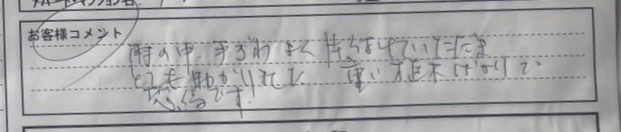 お客様コメント
雨の中、手ぎわよく持ちはこんでいただき
とても助かりました 重い 雑木ばかりで
恐縮です。